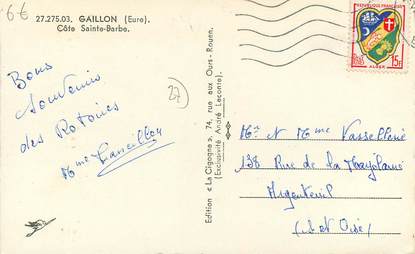 6€
27.275.03, GAILLON (Eure).
Côte Sainte-Barbe.
Bons
souvenirs
des Rotoirs
Mme
27
Edition « La Cigogne », 74, rue aux Ours - Rouen.
(Exclusivité André Leconte).
REPUBLIQUE FRANÇAISE
ALGER
15F
Mr et Mme Vasselerie
138 Rue de la
Argenteuil
(S et Oise)